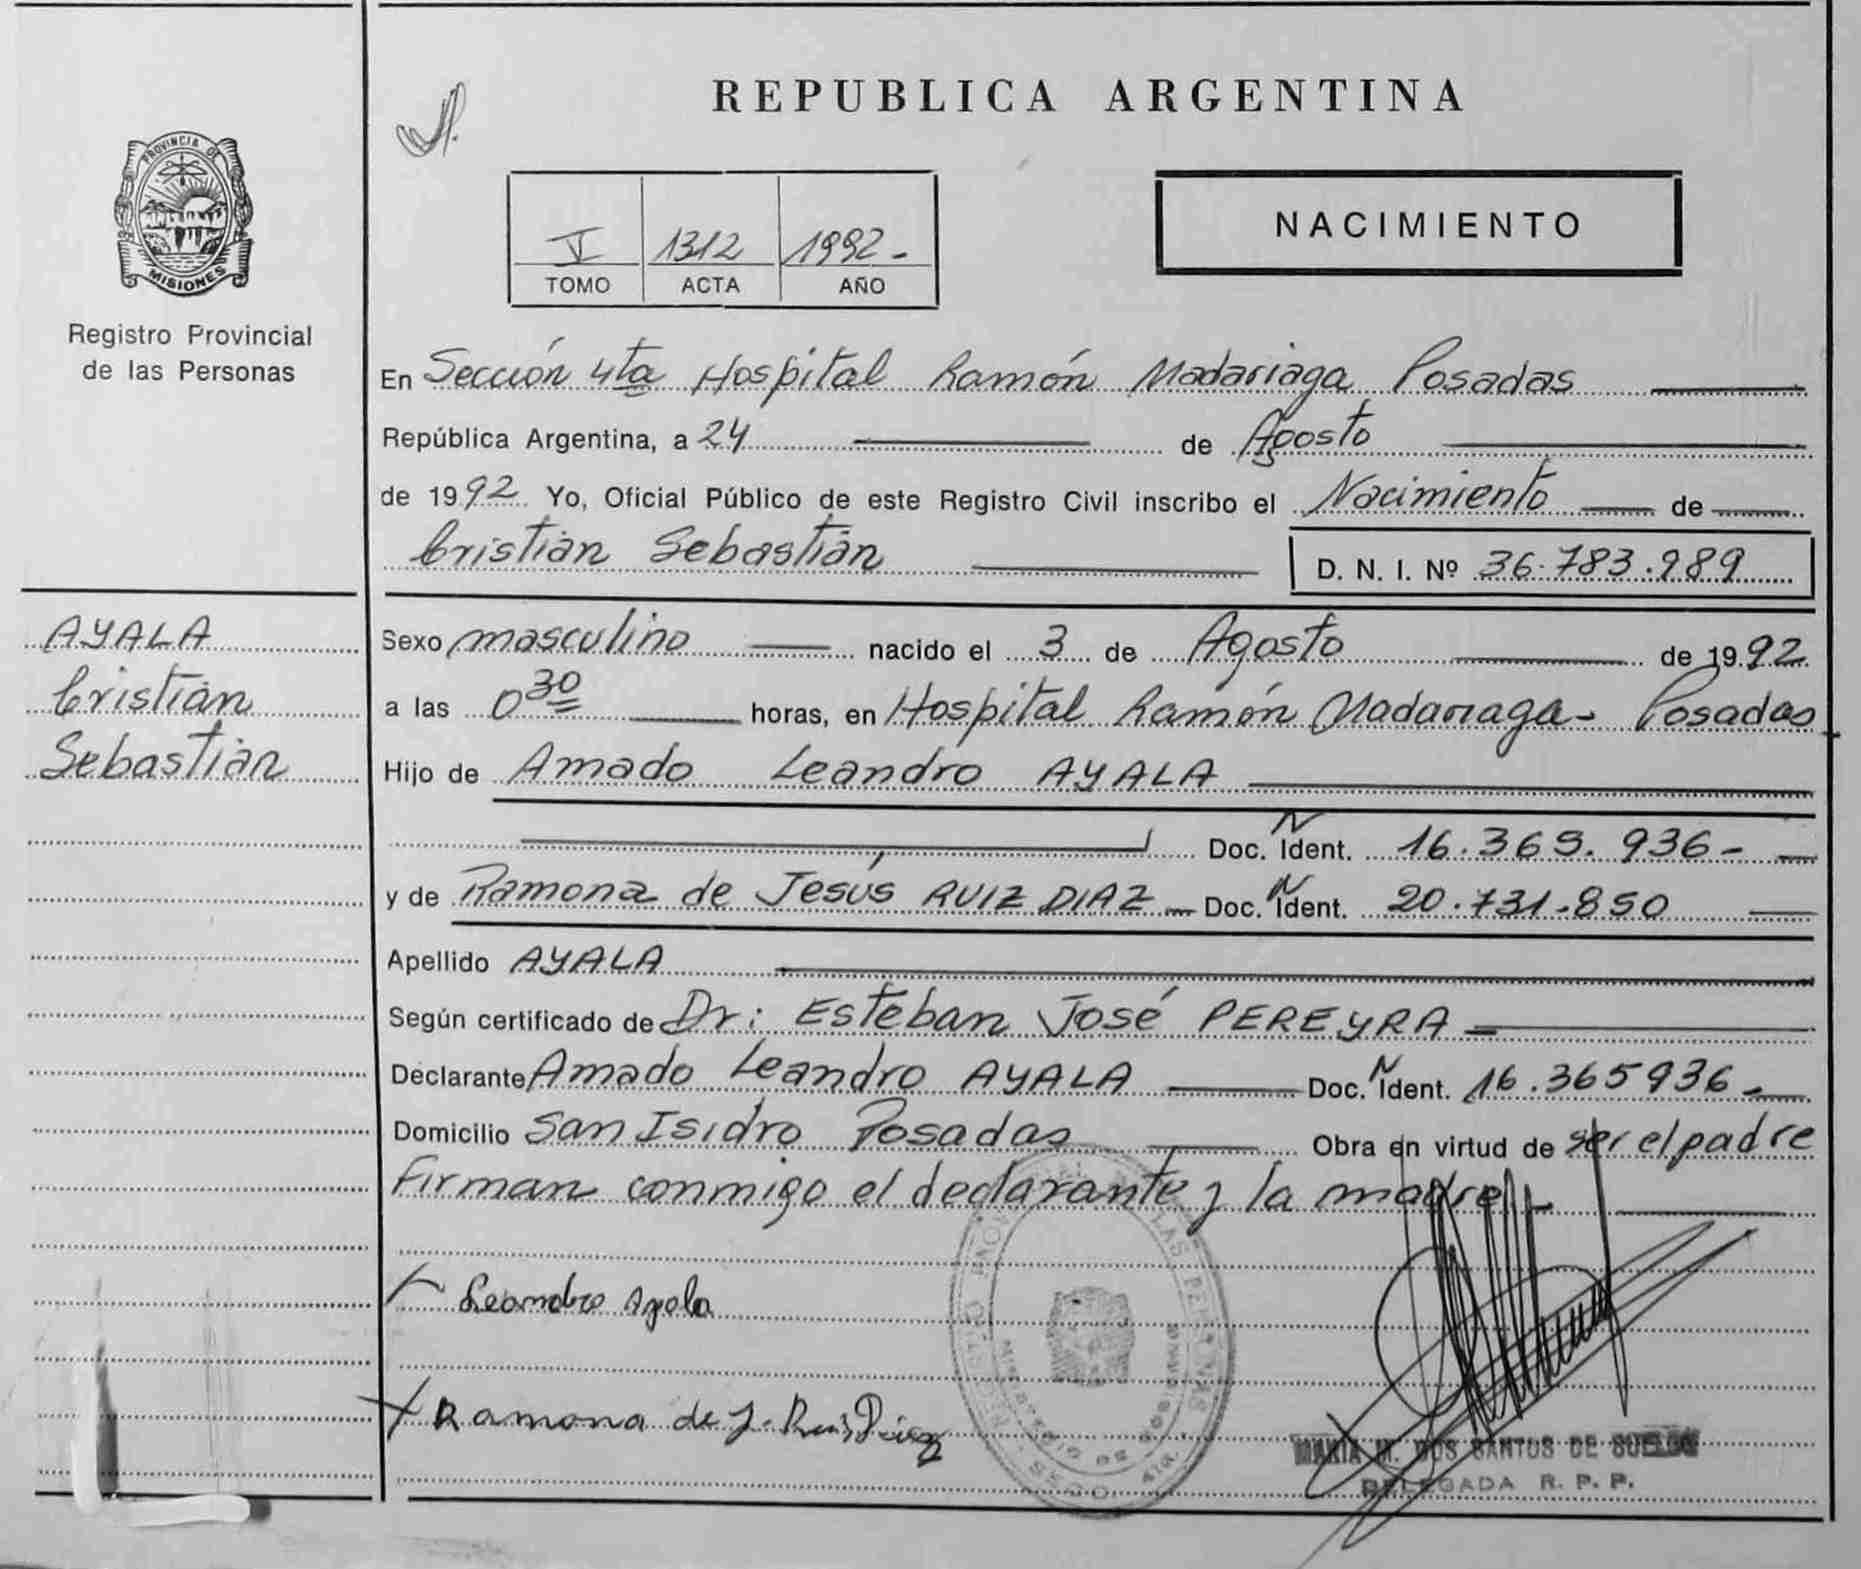 REPUBLICA ARGENTINA
PROVINCIA DE
MISIONES
Registro Provincial
de las Personas
V 1312 1992-
TOMO ACTA AÑO
NACIMIENTO
En Sección 4ta Hospital Ramón Madariaga Posadas
República Argentina, a 24 de Agosto
de 1992 Yo, Oficial Público de este Registro Civil inscribo el Nacimiento de
Cristian Sebastián D. N. I. Nº 36.783.989
AYALA
Cristian
Sebastián
Sexo masculino nacido el 3 de Agosto de 1992
a las 0 30 horas, en Hospital Ramón Madariaga- Posadas
Hijo de Amado Leandro AYALA
Doc. N Ident. 16.365.936-
y de Ramona de Jesús RUIZ DIAZ - Doc. N Ident. 20.731.850
Apellido AYALA
Según certificado de Dr: Esteban José PEREYRA
Declarante Amado Leandro AYALA Doc. N Ident. 16.365936-
Domicilio San Isidro Posadas Obra en virtud de ser el padre
Firman conmigo el declarante y la madre
Leandro Ayala
Ramona de J. Ruis Diaz
MARIA M. DOS SANTOS DE
DELEGADA R. P. P.